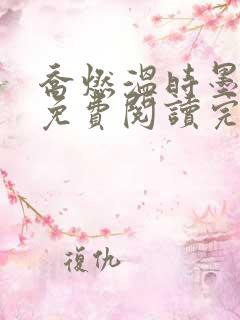 喬燃溫時墨
免費閱讀完
復仇